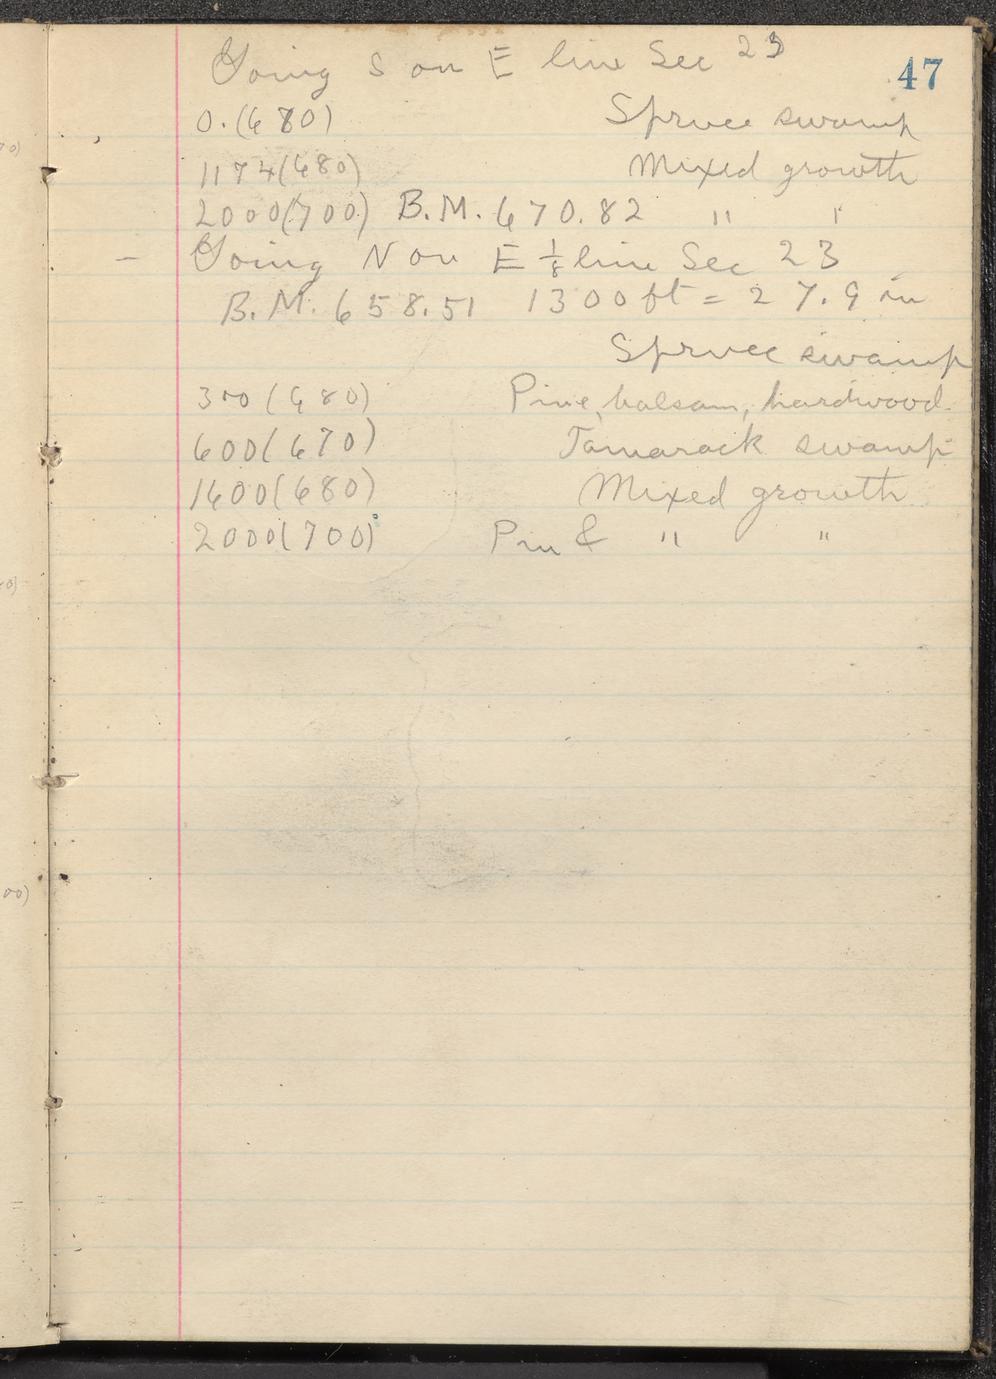 47
Going S on E line Sec 23
0.(680) Spruce swamp
1174(680) Mixed growth
2000(700) B.M. 670.82 " "
— Going N on E 1/8 line Sec 23
B.M. 658.51 1300 ft = 27.9 in
Spruce swamp
300 (680) Pine, balsam, hardwood.
600(670) Tamarack swamp
1600(680) Mixed growth
2000(700) Pine & " "